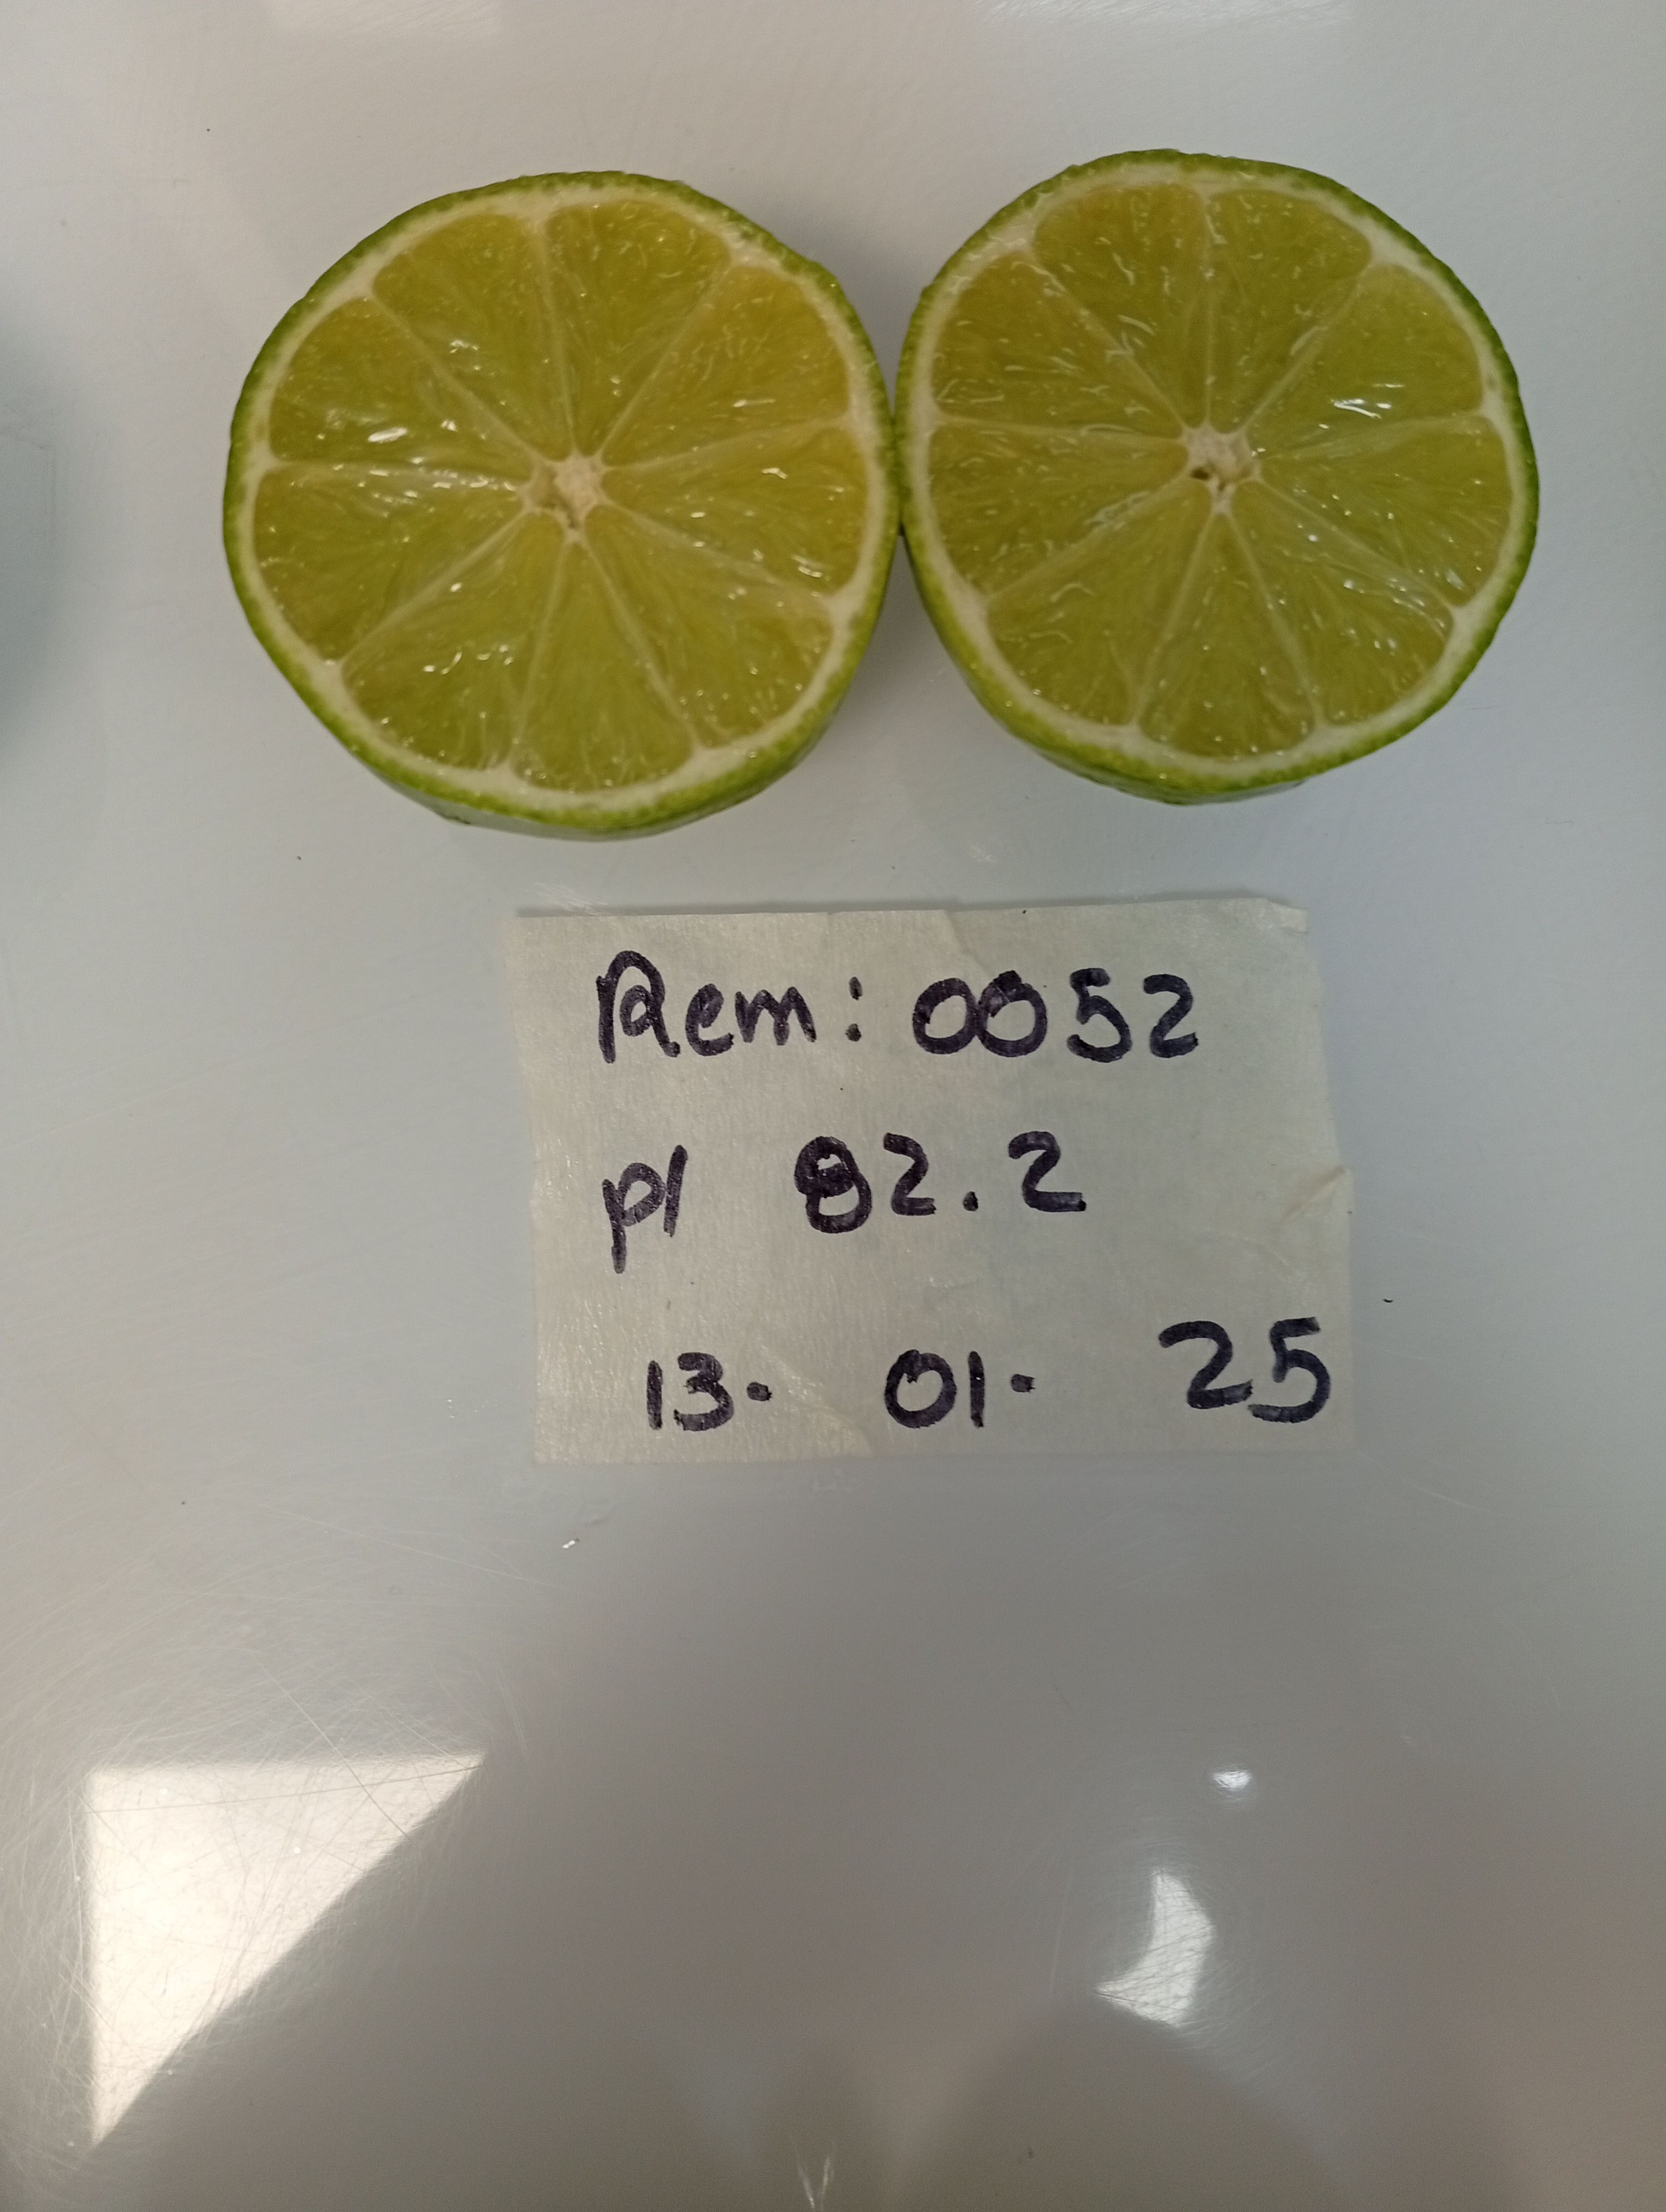 Rem: 0052
pl 82.2
13. 01. 25